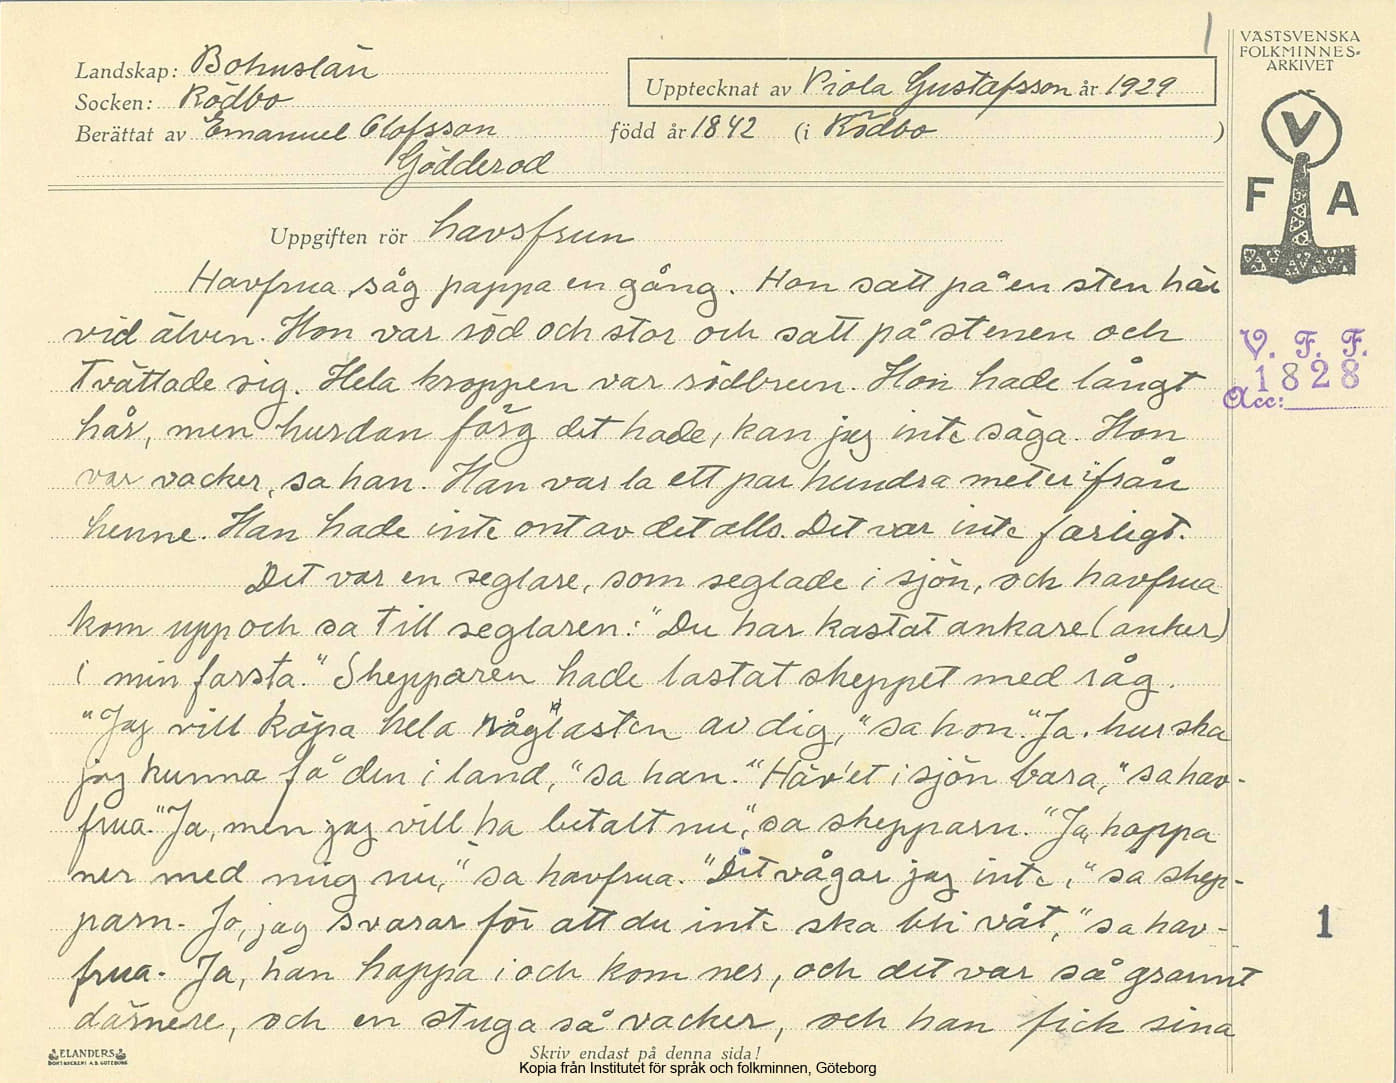 1
VÄSTSVENSKA
FOLKMINNES-
ARKIVET
Landskap: Bohuslän
Upptecknat av Viola Gustafsson år 1929
Socken: Rödbo
Berättat av Emanuel Olofsson född år 1842 (i Rödbo)
Gödderod
V
F A
Uppgiften rör havsfrun
Havfrua såg pappa en gång. Hon satt på en sten här
vid älven. Hon var röd och stor och satt på stenen och
tvättade sig. Hela kroppen var rödbrun. Hon hade långt
hår, men hurdan färg det hade, kan jag inte säga. Hon
var vacker, sa han. Han var la ett par hundra meter ifrån
henne. Han hade inte ont av det alls. Det var inte farligt.
Det var en seglare, som seglade i sjön, och havfrua
kom upp och sa till seglaren: "Du har kastat ankare (anker)
i min farsta." Shepparen hade lastat sheppet med råg.
"Jag vill köpa hela råglasten av dig," sa hon. "Ja. hur ska
jag kunna få den i land," sa han. "Häv'et i sjön bara," sa hav-
frua. "Ja, men jag vill ha betalt nu," sa shepparn. "Ja, hoppa
ner med mig nu," sa havfrua. "Det vågar jag inte," sa shep-
parn. Jo, jag svarar för att du inte ska bli våt," sa hav-
frua. Ja, han hoppa i och kom ner, och det var så grannt
därnere, och en stuga så vacker, och han fick sina
V. F. F.
1828
Acc:
1
ELANDERS
BOKTRYCKERI A.B. GÖTEBORG
Skriv endast på denna sida!
Kopia från Institutet för språk och folkminnen, Göteborg